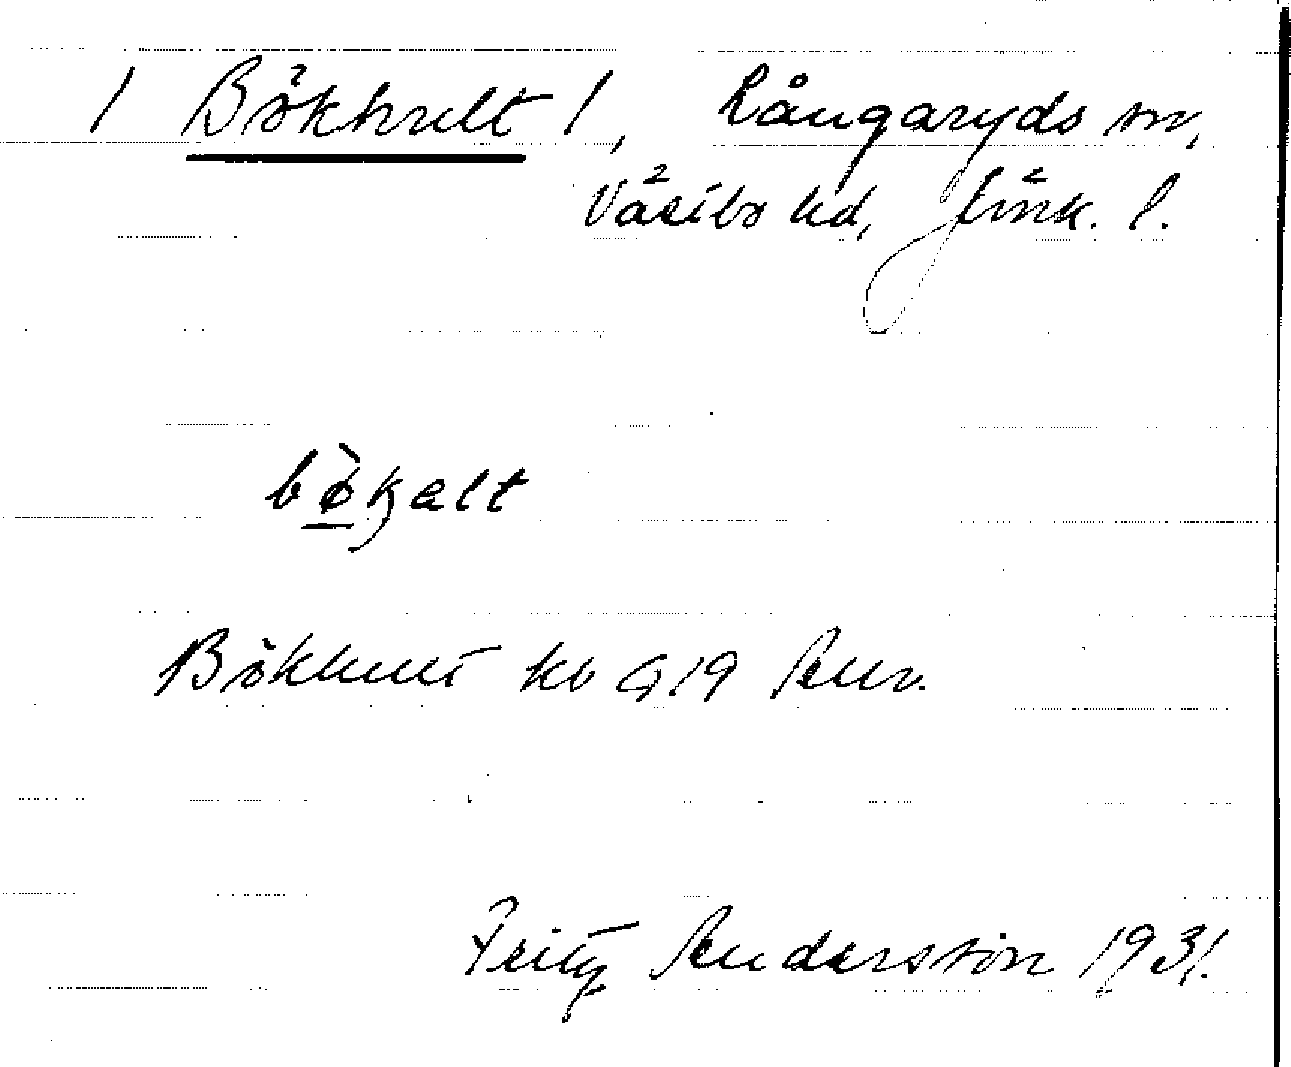 / Bökhult /, Långaryds sn,
Västbo hd, Jönk. l.
bø̀kalt
Bökhult kb G 19 Anv.
Fritz Andersson 1931.